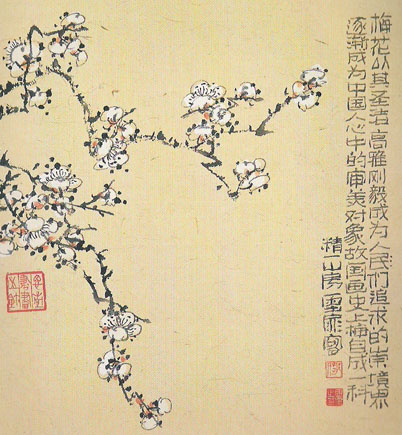 梅花以其圣洁高雅刚毅成为人民们追求的崇境界
逐渐成为中国人心中的审美对象故国画史上梅自成一科
精一山房